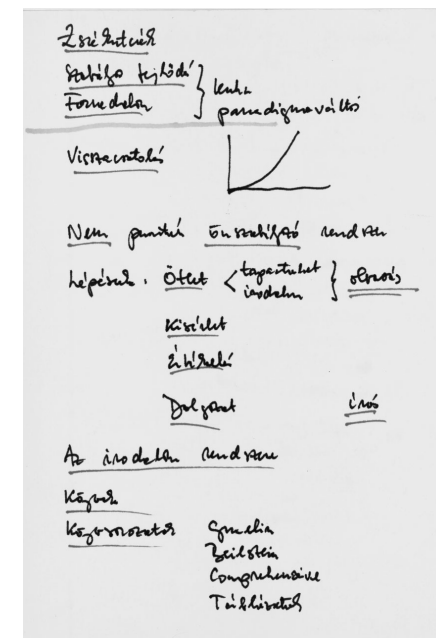 Zsákutcák
Stabilis fejlődés } Kuhn
Forradalom paradigmaváltás
Visszacsatolás
Nem pusztán önszabályzó rendszer
Lépések: Ötlet < tapasztalat } olvasás
irodalom
Kisérlet
Értékelés
Dolgozat írás
Az irodalom rendszere
Könyvek
Könyvsorozatok Gmelin
Beilstein
Comprehensive
Táblázatok